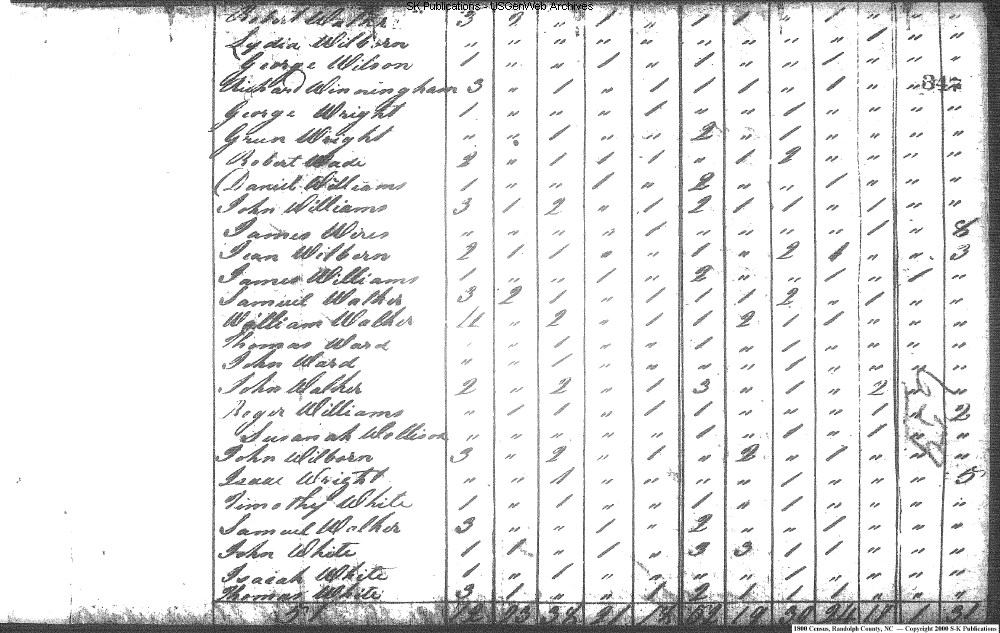 SK Publications - USGenWeb Archives
Robert Walker 3 2 " 1 " 1 1 " 1 " " "
Lydia Wilborn " " " " " " " " " 1 " "
George Wilson 1 " " 1 " 1 " " 1 " " "
Richard Winningham 3 " 1 " 1 1 1 " 1 " "
347
George Wright 1 " " " 1 " " 1 " " "
Grun Wright " " 1 " " 2 " 1 " " " "
Robert Wade 2 " 1 1 1 " 1 2 " " " "
Daniel Williams 1 " " 1 " 2 " " 1 " " "
John Williams 3 1 2 " 1 2 1 1 " 1 " "
James Wires " " " " 1 " " " " 1 " 8
Wilborn 2 1 1 " " 1 " 2 1 " " 3
James Williams 1 " " 1 " 2 " " 1 " 1 "
Samuel Walker 3 2 1 " 1 1 1 2 " 1 " "
William Walker " 2 " 1 1 2 1 1 " " "
Thomas Ward " 1 " " 1 " 1 " " " "
John Ward " " 1 " " " " 1 " " " "
John Walker 2 " 2 " 1 3 " 1 " 2 "
Roger Williams " 1 1 " 1 1 " " " 1 " 2
Susanah Wollison " " " " " 1 " 1 " 1 " "
John Wilborn 3 " 2 " 1 " 2 " 1 " "
Isaac Wright " " 1 " " " " 1 " " 5
Timothy White 1 " 1 " " 1 " 1 " " " "
Samuel Walker 3 " " 1 " 2 " " 1 " " "
John White 1 1 " 1 " 3 3 1 1 " " "
Isaiah White 1 " 1 " " " " 1 " " " "
Thomas White 3 1 " " 1 2 1 1 1 " " "
1800 Census, Randolph County, NC — Copyright 2000 S-K Publications